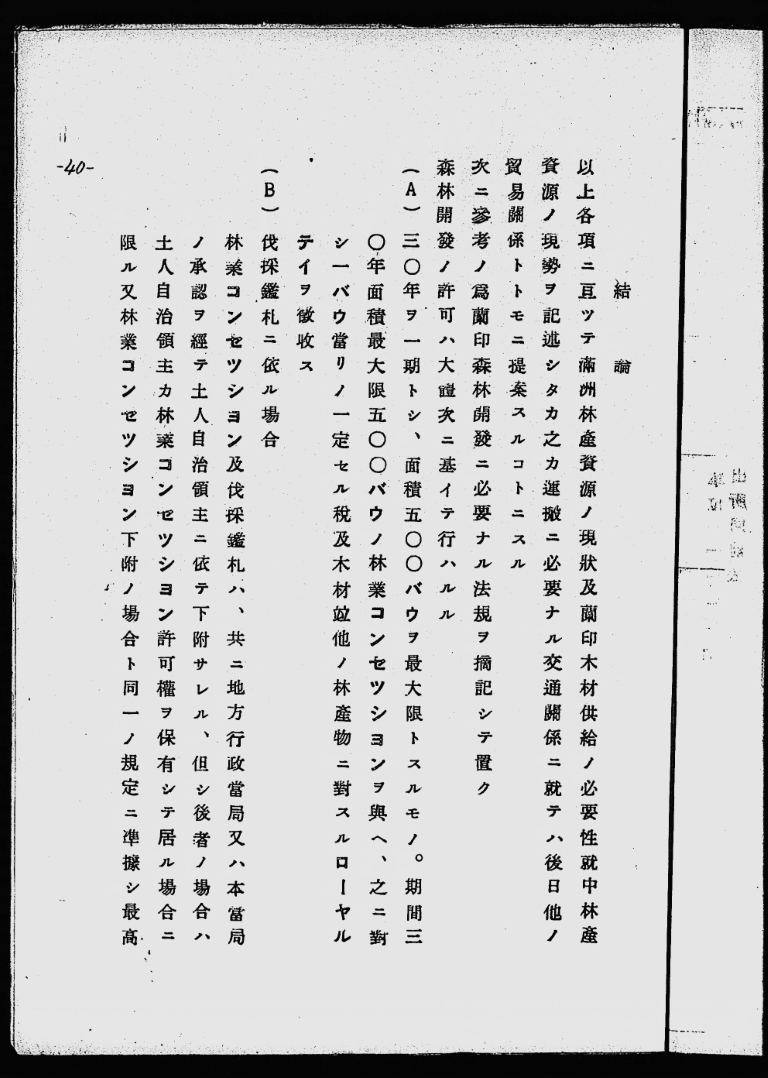 結論
以上各項ニ亘ツテ滿洲林産資源ノ現狀及蘭印木材供給ノ必要性就中林產
資源ノ現勢ヲ記述シタカ之カ運搬ニ必要ナル交通關係ニ就テハ後日他ノ
貿易關係トトモニ提案スルコトニスル
次ニ參考ノ爲蘭印森林開發ニ必要ナル法規ヲ摘記シテ置ク
森林開發ノ許可ハ大體次ニ基イテ行ハルル
(A)三〇年ヲ一期トシ、面積五〇〇バウヲ最大限トスルモノ。期間三
〇年面積最大限五〇〇バウノ林業コンセツシヨンヲ與ヘ、之ニ對
シ一バウ當リノ一定セル稅及木材竝他ノ林產物ニ對スルローヤル
テイヲ徵收ス
(B)伐採鑑札ニ依ル場合
林業コンセツシヨン及伐採鑑札ハ、共ニ地方行政當局又ハ本當局
ノ承認ヲ經テ土人自治領主ニ依テ下附サレル、但シ後者ノ場合ハ
土人自治領主カ林業コンセツシヨン許可權ヲ保有シテ居ル場合ニ
限ル又林業コンセツシヨン下附ノ場合ト同一ノ規定ニ準據シ最高
-40-